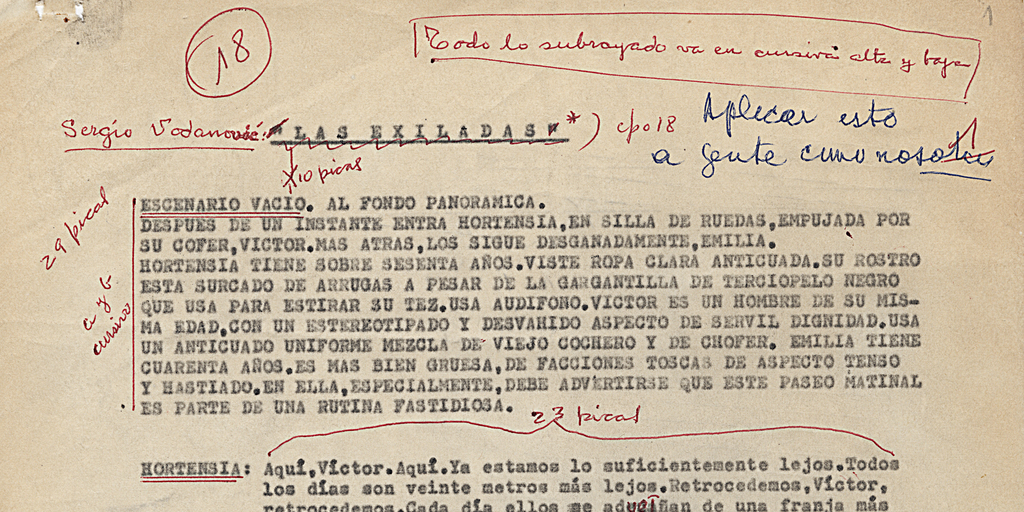 1
18
Todo lo subrayado va en cursiva alta y baja
Sergio Vodanović: "LAS EXILADAS" *) cpo18
Aplicar esto
a gente como nosotros
10 picas
29 picas
a y b
cursiva
ESCENARIO VACIO. AL FONDO PANORAMICA.
DESPUES DE UN INSTANTE ENTRA HORTENSIA,EN SILLA DE RUEDAS,EMPUJADA POR
SU COFER,VICTOR.MAS ATRAS,LOS SIGUE DESGANADAMENTE,EMILIA.
HORTENSIA TIENE SOBRE SESENTA AÑOS.VISTE ROPA CLARA ANTICUADA.SU ROSTRO
ESTA SURCADO DE ARRUGAS A PESAR DE LA GARGANTILLA DE TERCIOPELO NEGRO
QUE USA PARA ESTIRAR SU TEZ.USA AUDIFONO.VICTOR ES UN HOMBRE DE SU MIS-
MA EDAD,CON UN ESTEREOTIPADO Y DESVAHIDO ASPECTO DE SERVIL DIGNIDAD.USA
UN ANTICUADO UNIFORME MEZCLA DE VIEJO COCHERO Y DE CHOFER. EMILIA TIENE
CUARENTA AÑOS.ES MAS BIEN GRUESA,DE FACCIONES TOSCAS DE ASPECTO TENSO
Y HASTIADO.EN ELLA,ESPECIALMENTE,DEBE ADVERTIRSE QUE ESTE PASEO MATINAL
ES PARTE DE UNA RUTINA FASTIDIOSA.
23 picas
HORTENSIA: Aquí,Víctor.Aquí.Ya estamos lo suficientemente lejos.Todos
los días son veinte metros más lejos.Retrocedemos,Víctor,
retrocedemos.Cada día ellos se adueñan de una franja más